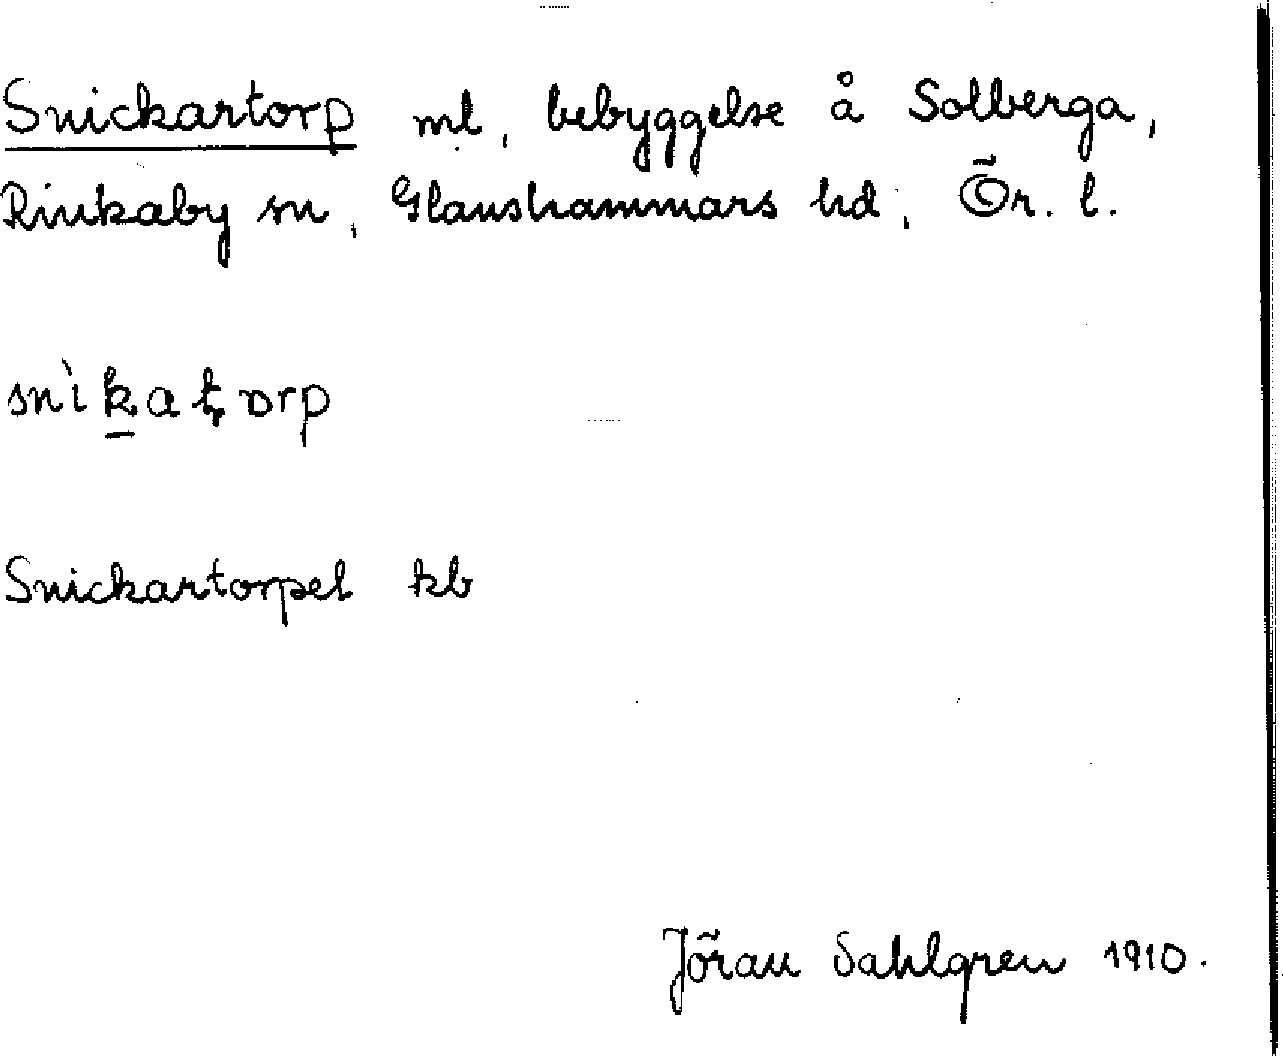 Snickartorp ml, bebyggelse å Solberga,
Rinkaby sn, Glanshammars hd, Ör. l.
snìk̲aʈɒrp
Snickartorpet kb
Jöran Sahlgren 1910.